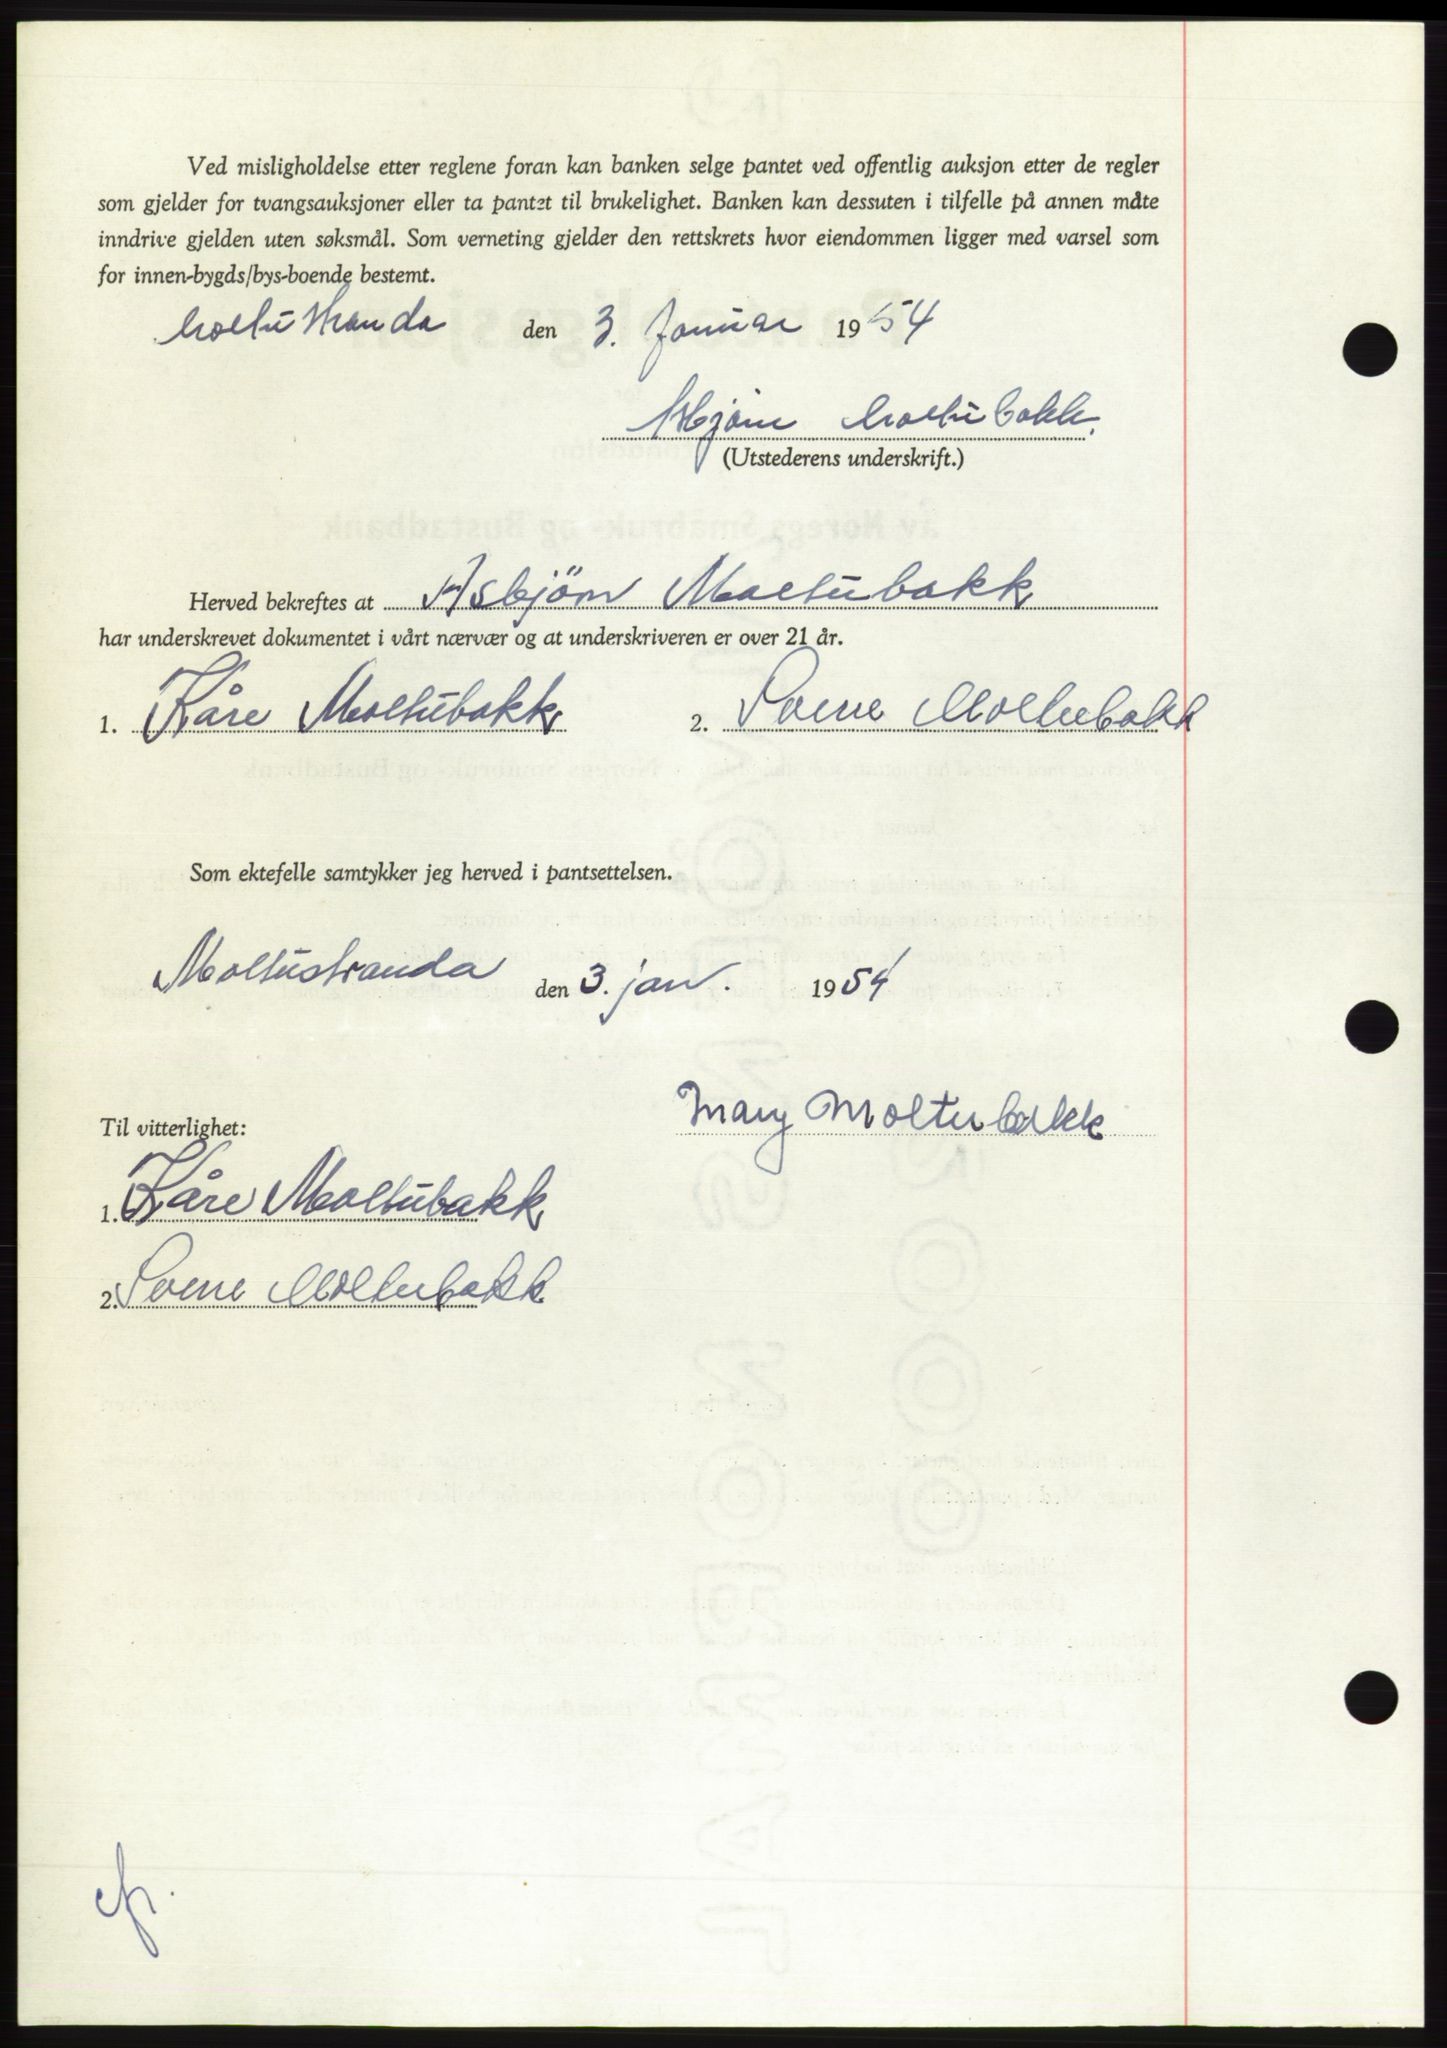 Ved misligholdelse etter reglene foran kan banken selge pantet ved offentlig auksjon etter de regler
som gjelder for tvangsauksjoner eller ta pantet til brukelighet. Banken kan dessuten i tilfelle på annen måte
inndrive gjelden uten søksmål. Som verneting gjelder den rettskrets hvor eiendommen ligger med varsel som
for innen-bygds/bys-boende bestemt.
Moltustranda den 3. Januar 1954
Asbjørn Moltubakk.
(Utstederens underskrift.)
Herved bekreftes at Asbjörn Moltubakk
har underskrevet dokumentet i vårt nærvær og at underskriveren er over 21 år.
1. Kåre Moltubakk 2. Sverre Moltubakk
Som ektefelle samtykker jeg herved i pantsettelsen.
Moltustranda den 3. jan. 1954
Mary Moltubakk
Til vitterlighet:
1. Kåre Moltubakk
2. Sverre Moltubakk